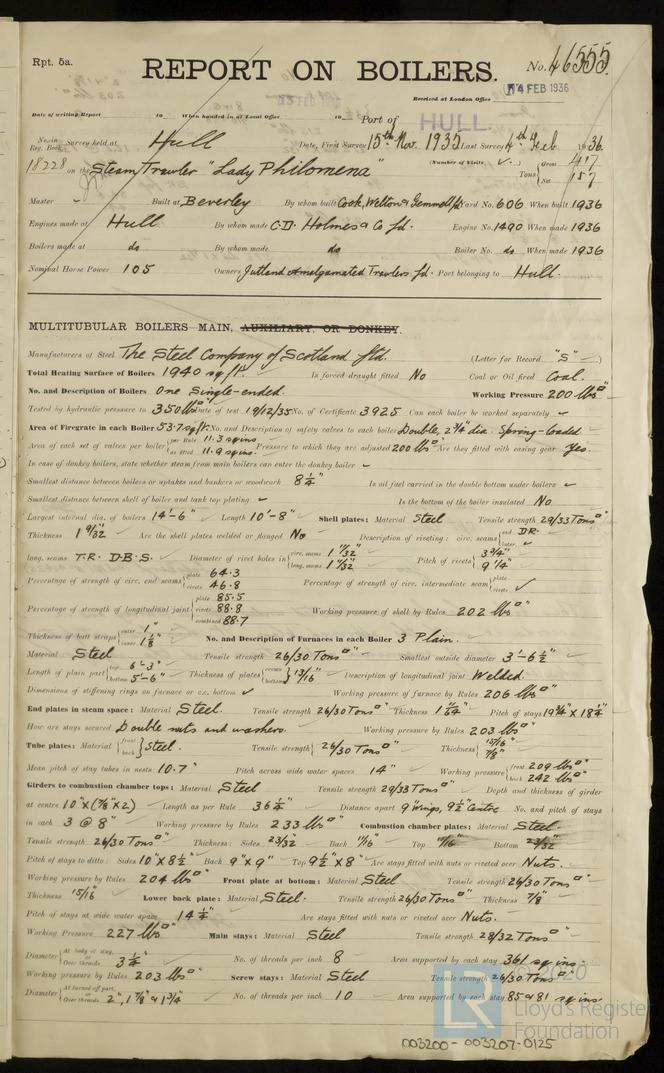 Rpt. 5a.
REPORT ON BOILERS.
No. 46555.
Received at London Office 4 FEB 1936
Date of writing Report 19 When handed in at Local Office 19 Port of HULL.
No. in Reg. Book. Survey held at Hull Date, First Survey 15th Nov. 1935 Last Survey 4th Feb. 1936
18228 on the Steam Trawler "Lady Philomena" (Number of Visits ) Tons Gross 417 Net 157
Master Built at Beverley By whom built Cook, Welton & Gemmell Ld Yard No. 606 When built 1936
Engines made at Hull By whom made C.D. Holmes & Co Ld. Engine No. 1490 When made 1936
Boilers made at do By whom made do Boiler No. do When made 1936
Nominal Horse Power 105 Owners Jutland Amalgamated Trawlers Ld. Port belonging to Hull.
MULTITUBULAR BOILERS MAIN, AUXILIARY, OR DONKEY.
Manufacturers of Steel The Steel Company of Scotland Ltd. (Letter for Record "S" )
Total Heating Surface of Boilers 1940 sq ft. Is forced draught fitted No Coal or Oil fired Coal.
No. and Description of Boilers One Single-ended. Working Pressure 200 lbs□"
Tested by hydraulic pressure to 350 lbs□" Date of test 19/12/35 No. of Certificate 3925 Can each boiler be worked separately ✓
Area of Firegrate in each Boiler 53.7 sq ft. No. and Description of safety valves to each boiler Double, 2¾" dia. Spring-loaded
Area of each set of valves per boiler per Rule 11.3 sq ins as fitted 11.9 sq ins. Pressure to which they are adjusted 200 lbs□" Are they fitted with easing gear Yes.
In case of donkey boilers, state whether steam from main boilers can enter the donkey boiler ✓
Smallest distance between boilers or uptakes and bunkers or woodwork 8¼" Is oil fuel carried in the double bottom under boilers ✓
Smallest distance between shell of boiler and tank top plating ✓ Is the bottom of the boiler insulated No
Largest internal dia. of boilers 14'-6" Length 10'-8" Shell plates: Material Steel Tensile strength 29/33 Tons□"
Thickness 1 9/32" Are the shell plates welded or flanged No Description of riveting: circ. seams end D.R. inter. ✓
long. seams T.R. D.B.S. Diameter of rivet holes in circ. seams 1 11/32" long. seams 1 11/32" Pitch of rivets 3¾" 9¼"
Percentage of strength of circ. end seams plate 64.3 rivets 46.8 Percentage of strength of circ. intermediate seam plate rivets ✓
Percentage of strength of longitudinal joint plate 85.5 rivets 88.8 combined 88.7 Working pressure of shell by Rules 202 lbs□"
Thickness of butt straps outer 1" inner 1⅛" No. and Description of Furnaces in each Boiler 3 Plain.
Material Steel Tensile strength 26/30 Tons□" Smallest outside diameter 3'-6½"
Length of plain part top 6'-3" bottom 5'-6" Thickness of plates crown bottom 13/16" Description of longitudinal joint Welded.
Dimensions of stiffening rings on furnace or c.c. bottom ✓ Working pressure of furnace by Rules 206 lbs□"
End plates in steam space: Material Steel. Tensile strength 26/30 Tons□" Thickness 1 9/64" Pitch of stays 19¾" x 18¼"
How are stays secured Double nuts and washers. Working pressure by Rules 203 lbs□"
Tube plates: Material front back Steel. Tensile strength 26/30 Tons□" Thickness 15/16" 7/8"
Mean pitch of stay tubes in nests 10.7" Pitch across wide water spaces 14" Working pressure front 209 lbs□" back 242 lbs□"
Girders to combustion chamber tops: Material Steel Tensile strength 29/33 Tons□" Depth and thickness of girder
at centre 10" x (⅞" x 2) Length as per Rule 36¼" Distance apart 9" Wings, 9½" Centre No. and pitch of stays
in each 3 @ 8" Working pressure by Rules 233 lbs□" Combustion chamber plates: Material Steel.
Tensile strength 26/30 Tons□" Thickness: Sides 23/32" Back 11/16" Top Bottom
Pitch of stays to ditto: Sides 10" x 8½" Back 9" x 9" Top 9½" x 8" Are stays fitted with nuts or riveted over Nuts.
Working pressure by Rules 204 lbs□" Front plate at bottom: Material Steel Tensile strength 26/30 Tons□"
Thickness 15/16" Lower back plate: Material Steel. Tensile strength 26/30 Tons□" Thickness 7/8"
Pitch of stays at wide water space 14¼" Are stays fitted with nuts or riveted over Nuts.
Working Pressure 227 lbs□" Main stays: Material Steel Tensile strength 28/32 Tons□"
Diameter At body of stay, or Over threads 3¼" No. of threads per inch 8 Area supported by each stay 361 sq ins.
Working pressure by Rules 203 lbs□" Screw stays: Material Steel Tensile strength 26/30 Tons□"
Diameter At turned off part, or Over threads 2", 1⅞" & 1¾" No. of threads per inch 10 Area supported by each stay 85 & 81 sq ins
© 2020
LR
Lloyd's Register
Foundation
003200-003207-0125